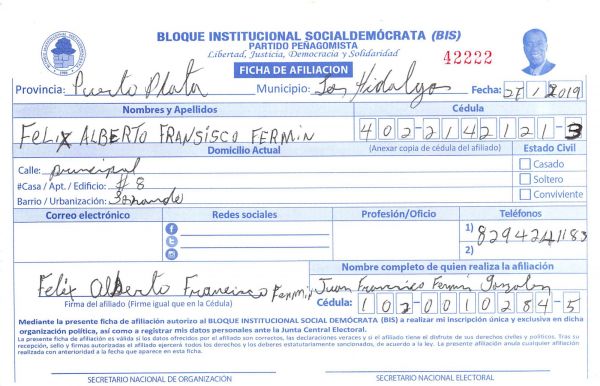 BLOQUE INSTITUCIONAL SOCIALDEMÓCRATA (BIS)
PARTIDO PEÑAGOMISTA
Libertad, Justicia, Democracia y Solidaridad
42222
FICHA DE AFILIACION
Provincia: Puerto Plata Municipio: Los Hidalgos Fecha: 27/12/2019
Nombres y Apellidos Cédula
FELIX ALBERTO FRANSISCO FERMIN 402-2142121-3
Domicilio Actual (Anexar copia de cédula del afiliado) Estado Civil
Calle: principal Casado
#Casa / Apt. / Edificio: # 8 Soltero
Barrio / Urbanización: Conviviente
Correo electrónico Redes sociales Profesión/Oficio Teléfonos
1) 8294241183
2)
Nombre completo de quien realiza la afiliación
Felix Alberto Francisco Fermin Juan Francisco Fermin
Firma del afiliado (Firme igual que en la Cédula) Cédula: 102-0010284-5
Mediante la presente ficha de afiliación autorizo al BLOQUE INSTITUCIONAL SOCIAL DEMÓCRATA (BIS) a realizar mi inscripción única y exclusiva en dicha
organización política, así como a registrar mis datos personales ante la Junta Central Electoral.
La presente ficha de afiliación es válida si los datos ofrecido por el afiliado son correctos, las declaraciones veraces y si el afiliado tiene el disfrute de sus derechos civiles y políticos. Tras su
recepción, sello y firmas autorizadas el afiliado ejercerá todos los derechos y los deberes estatutariamente sancionados, de acuerdo a la ley. La presente afiliación anula cualquier afiliación
realizada con anterioridad a la fecha que aparece en esta ficha.
SECRETARIO NACIONAL DE ORGANIZACIÓN SECRETARIO NACIONAL ELECTORAL